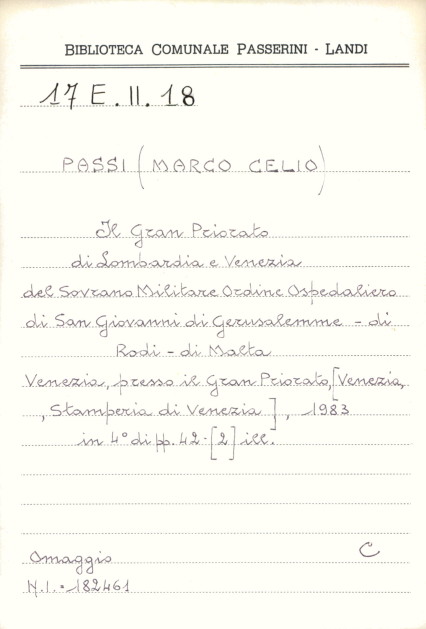 BIBLIOTECA COMUNALE PASSERINI - LANDI
17 E. II. 18
PASSI (MARCO CELIO)
Il Gran Priorato
di Lombardia e Venezia
del Sovrano Militare Ordine Ospedaliero
di San Giovanni di Gerusalemme - di
Rodi - di Malta
Venezia, presso il Gran Priorato, [Venezia,
, Stamperia di Venezia], 1983
in 4° di pp. 42-[2] ill.
Omaggio C
N.I. 182461